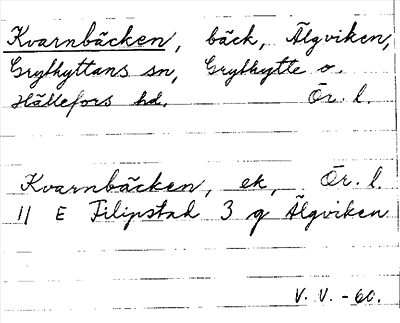 Kvarnbäcken, bäck, Älgviken,
Grythyttans sn, Grythytte o.
Hällefors hd. Ör. l.
Kvarnbäcken, ek, Ör. l.
11 E Filipstad 3 g Älgviken
V. V. -60.